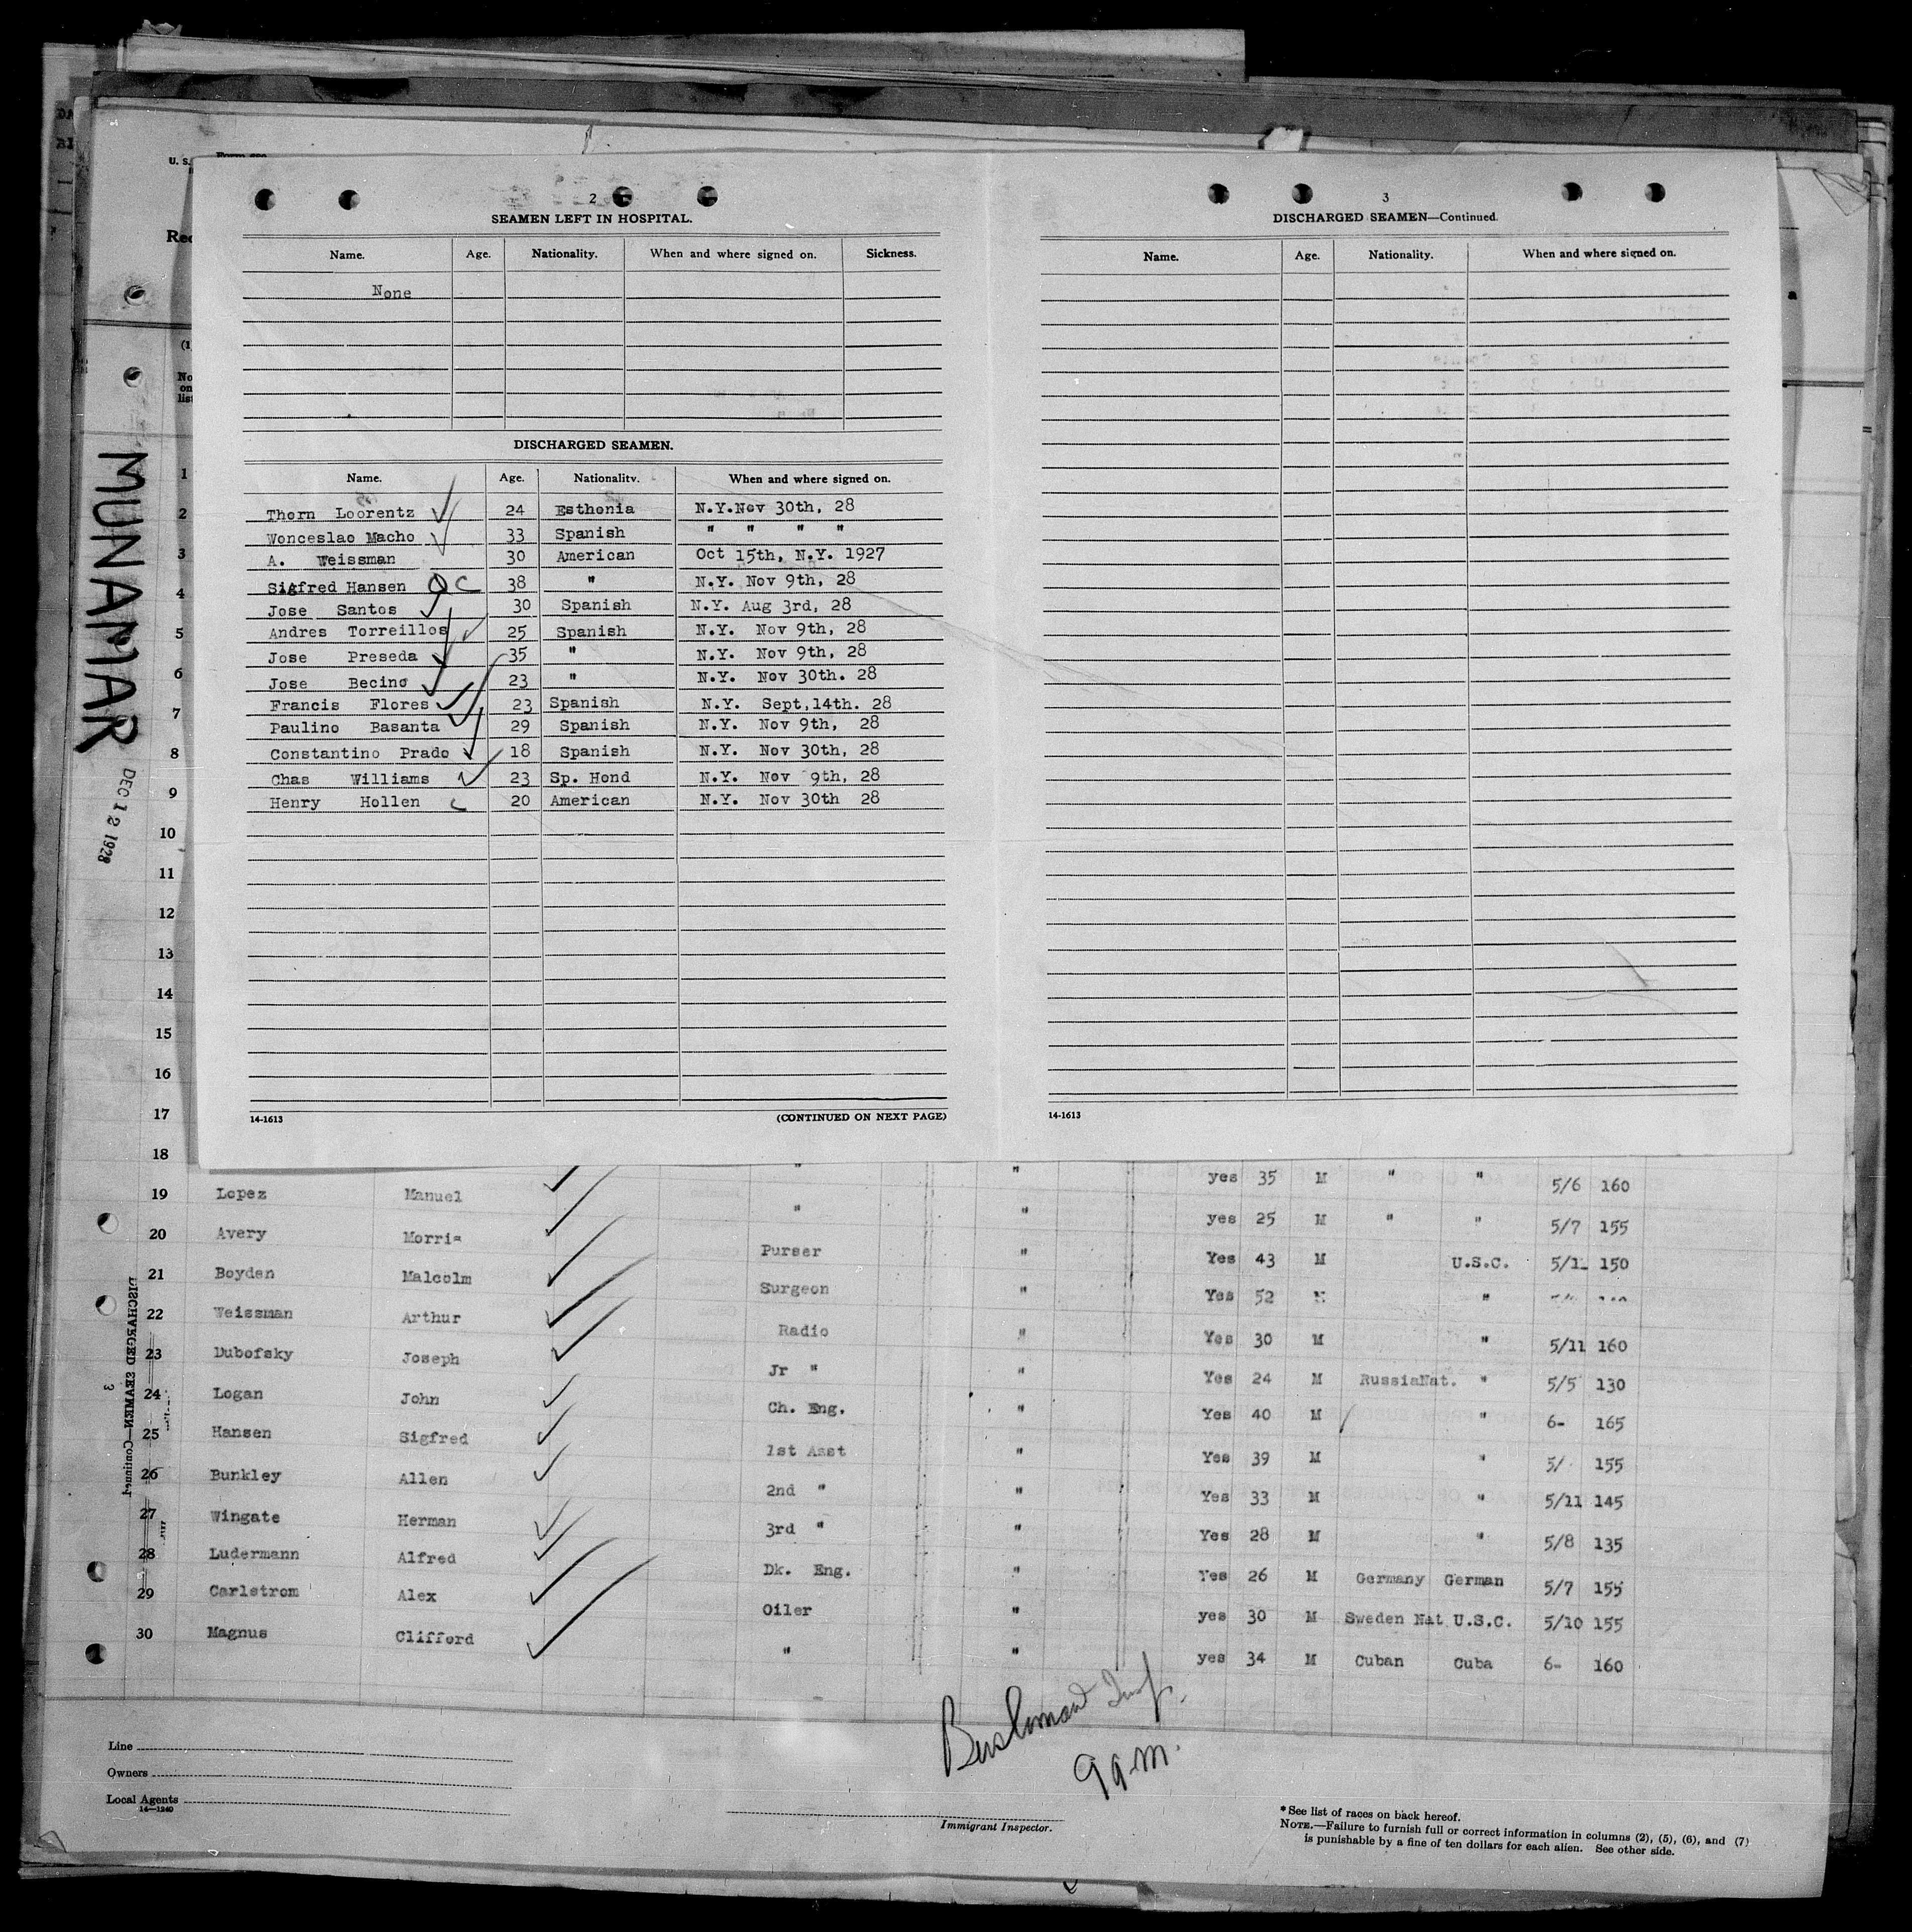 U. S.
2
SEAMEN LEFT IN HOSPITAL.
Name. Age. Nationality. When and where signed on. Sickness.
None
DISCHARGED SEAMEN.
Name. Age. Nationality. When and where signed on.
Thorn Loorentz 24 Esthonia N.Y.Nov 30th, 28
Wonceslao Macho 33 Spanish " " " "
A. Weissman 30 American Oct 15th, N.Y. 1927
Sigfred Hansen C 38 " N.Y. Nov 9th, 28
Jose Santos 30 Spanish N.Y. Aug 3rd, 28
Andres Torreillos 25 Spanish N.Y. Nov 9th, 28
Jose Preseda 35 " N.Y. Nov 9th, 28
Jose Becino 23 " N.Y. Nov 30th. 28
Francis Flores 23 Spanish N.Y. Sept,14th. 28
Paulino Basanta 29 Spanish N.Y. Nov 9th, 28
Constantino Prado 18 Spanish N.Y. Nov 30th, 28
Chas Williams 23 Sp. Hond N.Y. Nov 9th, 28
Henry Hollen C 20 American N.Y. Nov 30th 28
14-1613 (CONTINUED ON NEXT PAGE)
3
DISCHARGED SEAMEN—Continued.
Name. Age. Nationality. When and where signed on.
14-1613
MUNAMAR
DEC 12 1928
DISCHARGED SEAMEN—Continued.
3
(1)
No
on
list
1
2
3
4
5
6
7
8
9
10
11
12
13
14
15
16
17
18 " " yes 35 M " " 5/6 160
19 Lopez Manuel " " yes 25 M " " 5/7 155
20 Avery Morris Purser " Yes 43 M U.S.C. 150
21 Boyden Malcolm Surgeon " Yes 52 M "
22 Weissman Arthur Radio " Yes 30 M " 5/11 160
23 Dubofsky Joseph Jr " " Yes 24 M RussiaNat. " 5/5 130
24 Logan John Ch. Eng. " Yes 40 M " 6- 165
25 Hansen Sigfred 1st Asst " Yes 39 M " 5/ 155
26 Bunkley Allen 2nd " " Yes 33 M " 5/11 145
27 Wingate Herman 3rd " " Yes 28 M " 5/8 135
28 Ludermann Alfred Dk. Eng. " Yes 26 M Germany German 5/7 155
29 Carlstrom Alex Oiler " yes 30 M Sweden Nat U.S.C. 5/10 155
30 Magnus Clifford " " yes 34 M Cuban Cuba 6- 160
9 a.m.
Line
Owners
Local Agents
14—1240
Immigrant Inspector.
* See list of races on back hereof.
NOTE.—Failure to furnish full or correct information in columns (2), (5), (6), and (7)
is punishable by a fine of ten dollars for each alien. See other side.